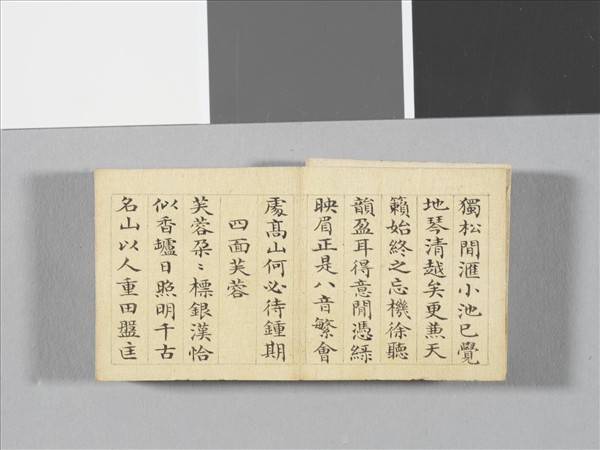 獨松間滙小池已覺
地琴清越矣更兼天
籟始終之忘機徐聽
韻盈耳得意閒憑綠
映眉正是八音繁會
處高山何必待鍾期
四面芙蓉
芙蓉朶〻標銀漢恰
似香壚日照明千古
名山以人重田盤𨓏